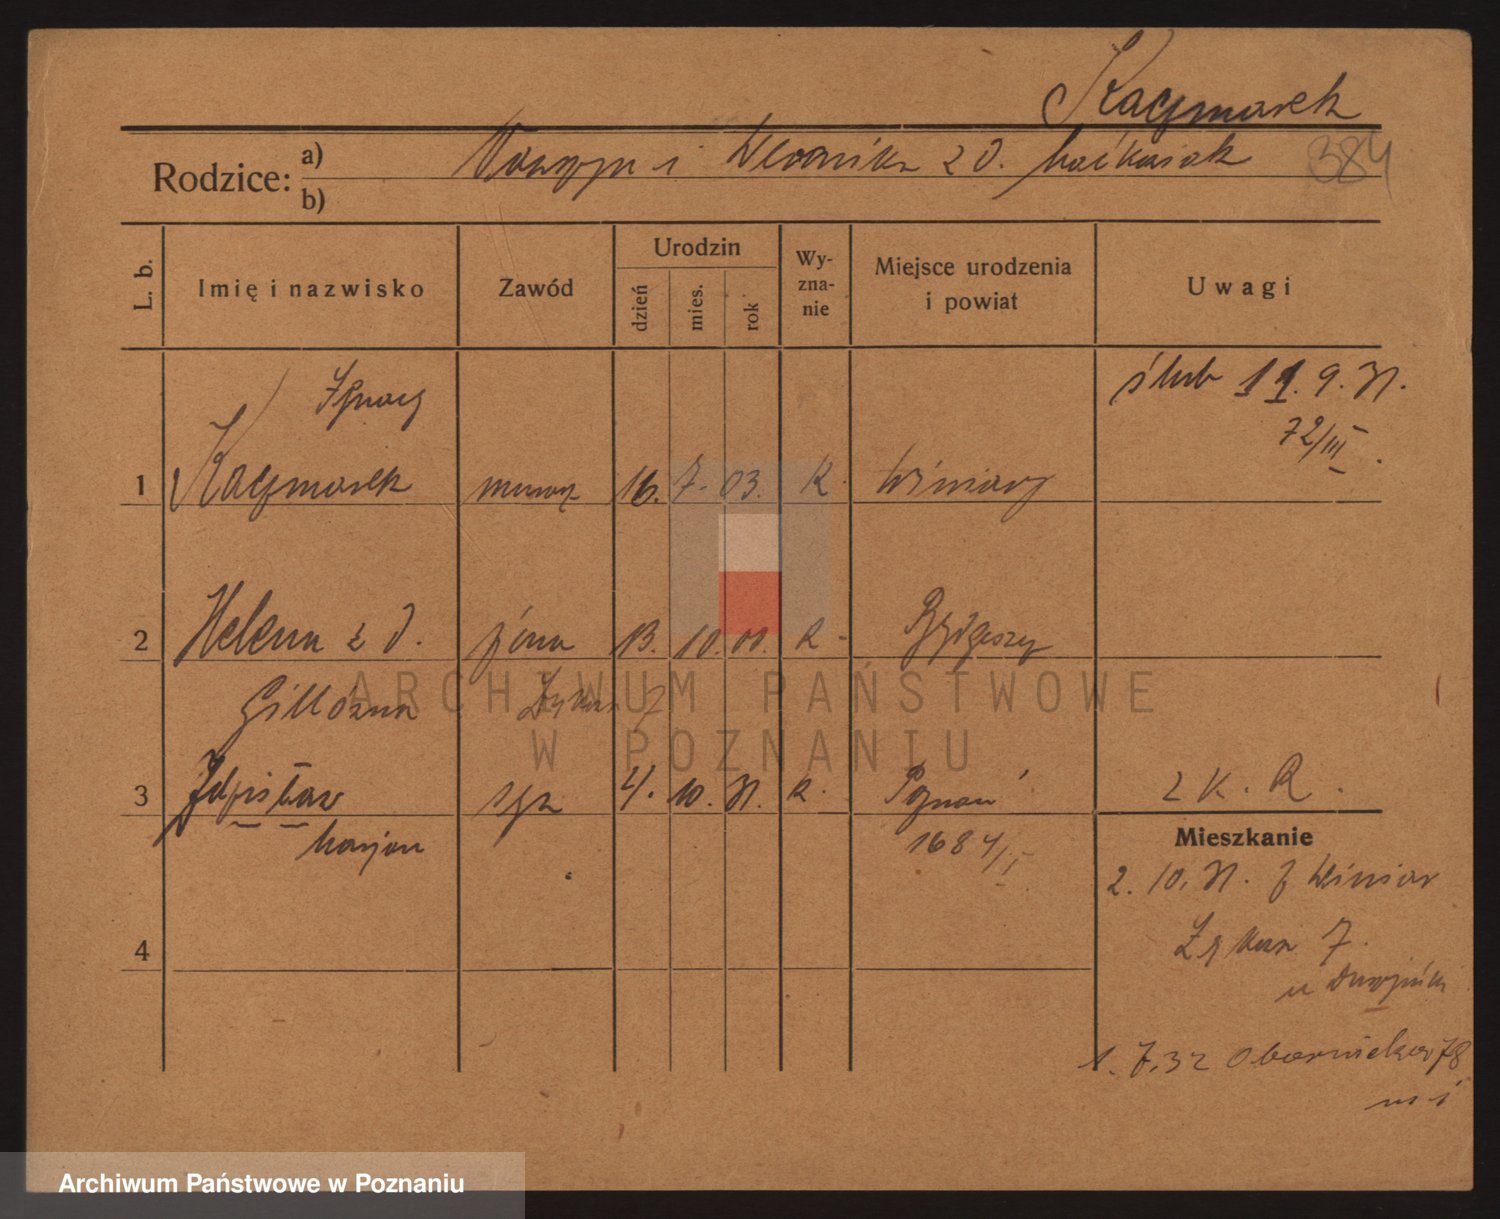 Kaczmarek
Rodzice: a) Wawrzyn i Weronika z d. Maćkowiak 384
b)
L. b. Imię i nazwisko Zawód Urodzin dzień mies. rok Wy-zna-nie Miejsce urodzenia i powiat Uwagi
Ignacy ślub 11. 9. 31.
72/III.
1 Kaczmarek murarz 16. 7. 03. K. Winiary
2 Helena z d. żona 13. 10. 01. R. Bydgoszcz
Gillówna
3 Zdzisław syn 4. 10. 31. R. Poznań 2 K. R.
Marjan 1684/I
Mieszkanie
2. 10. 31. z Winiar
7.
u
4
1. 7. 32 Obornicka 78
m 1
ARCHIWUM PAŃSTWOWE
W POZNANIU
Archiwum Państwowe w Poznaniu